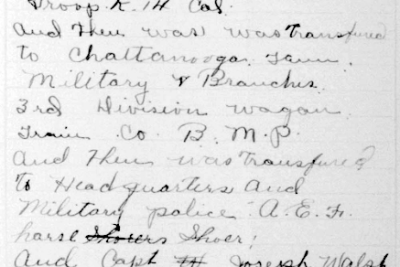 Troop K. 14 Cal.
and then was was transfured
to Chattanooga Tenn.
Military & Branches
3rd Division wagon
Train Co B. M.P.
And then was transfured
to Headquarters and
Military police A.E.F.
horse Shoer;
And Capt Joseph Walsh